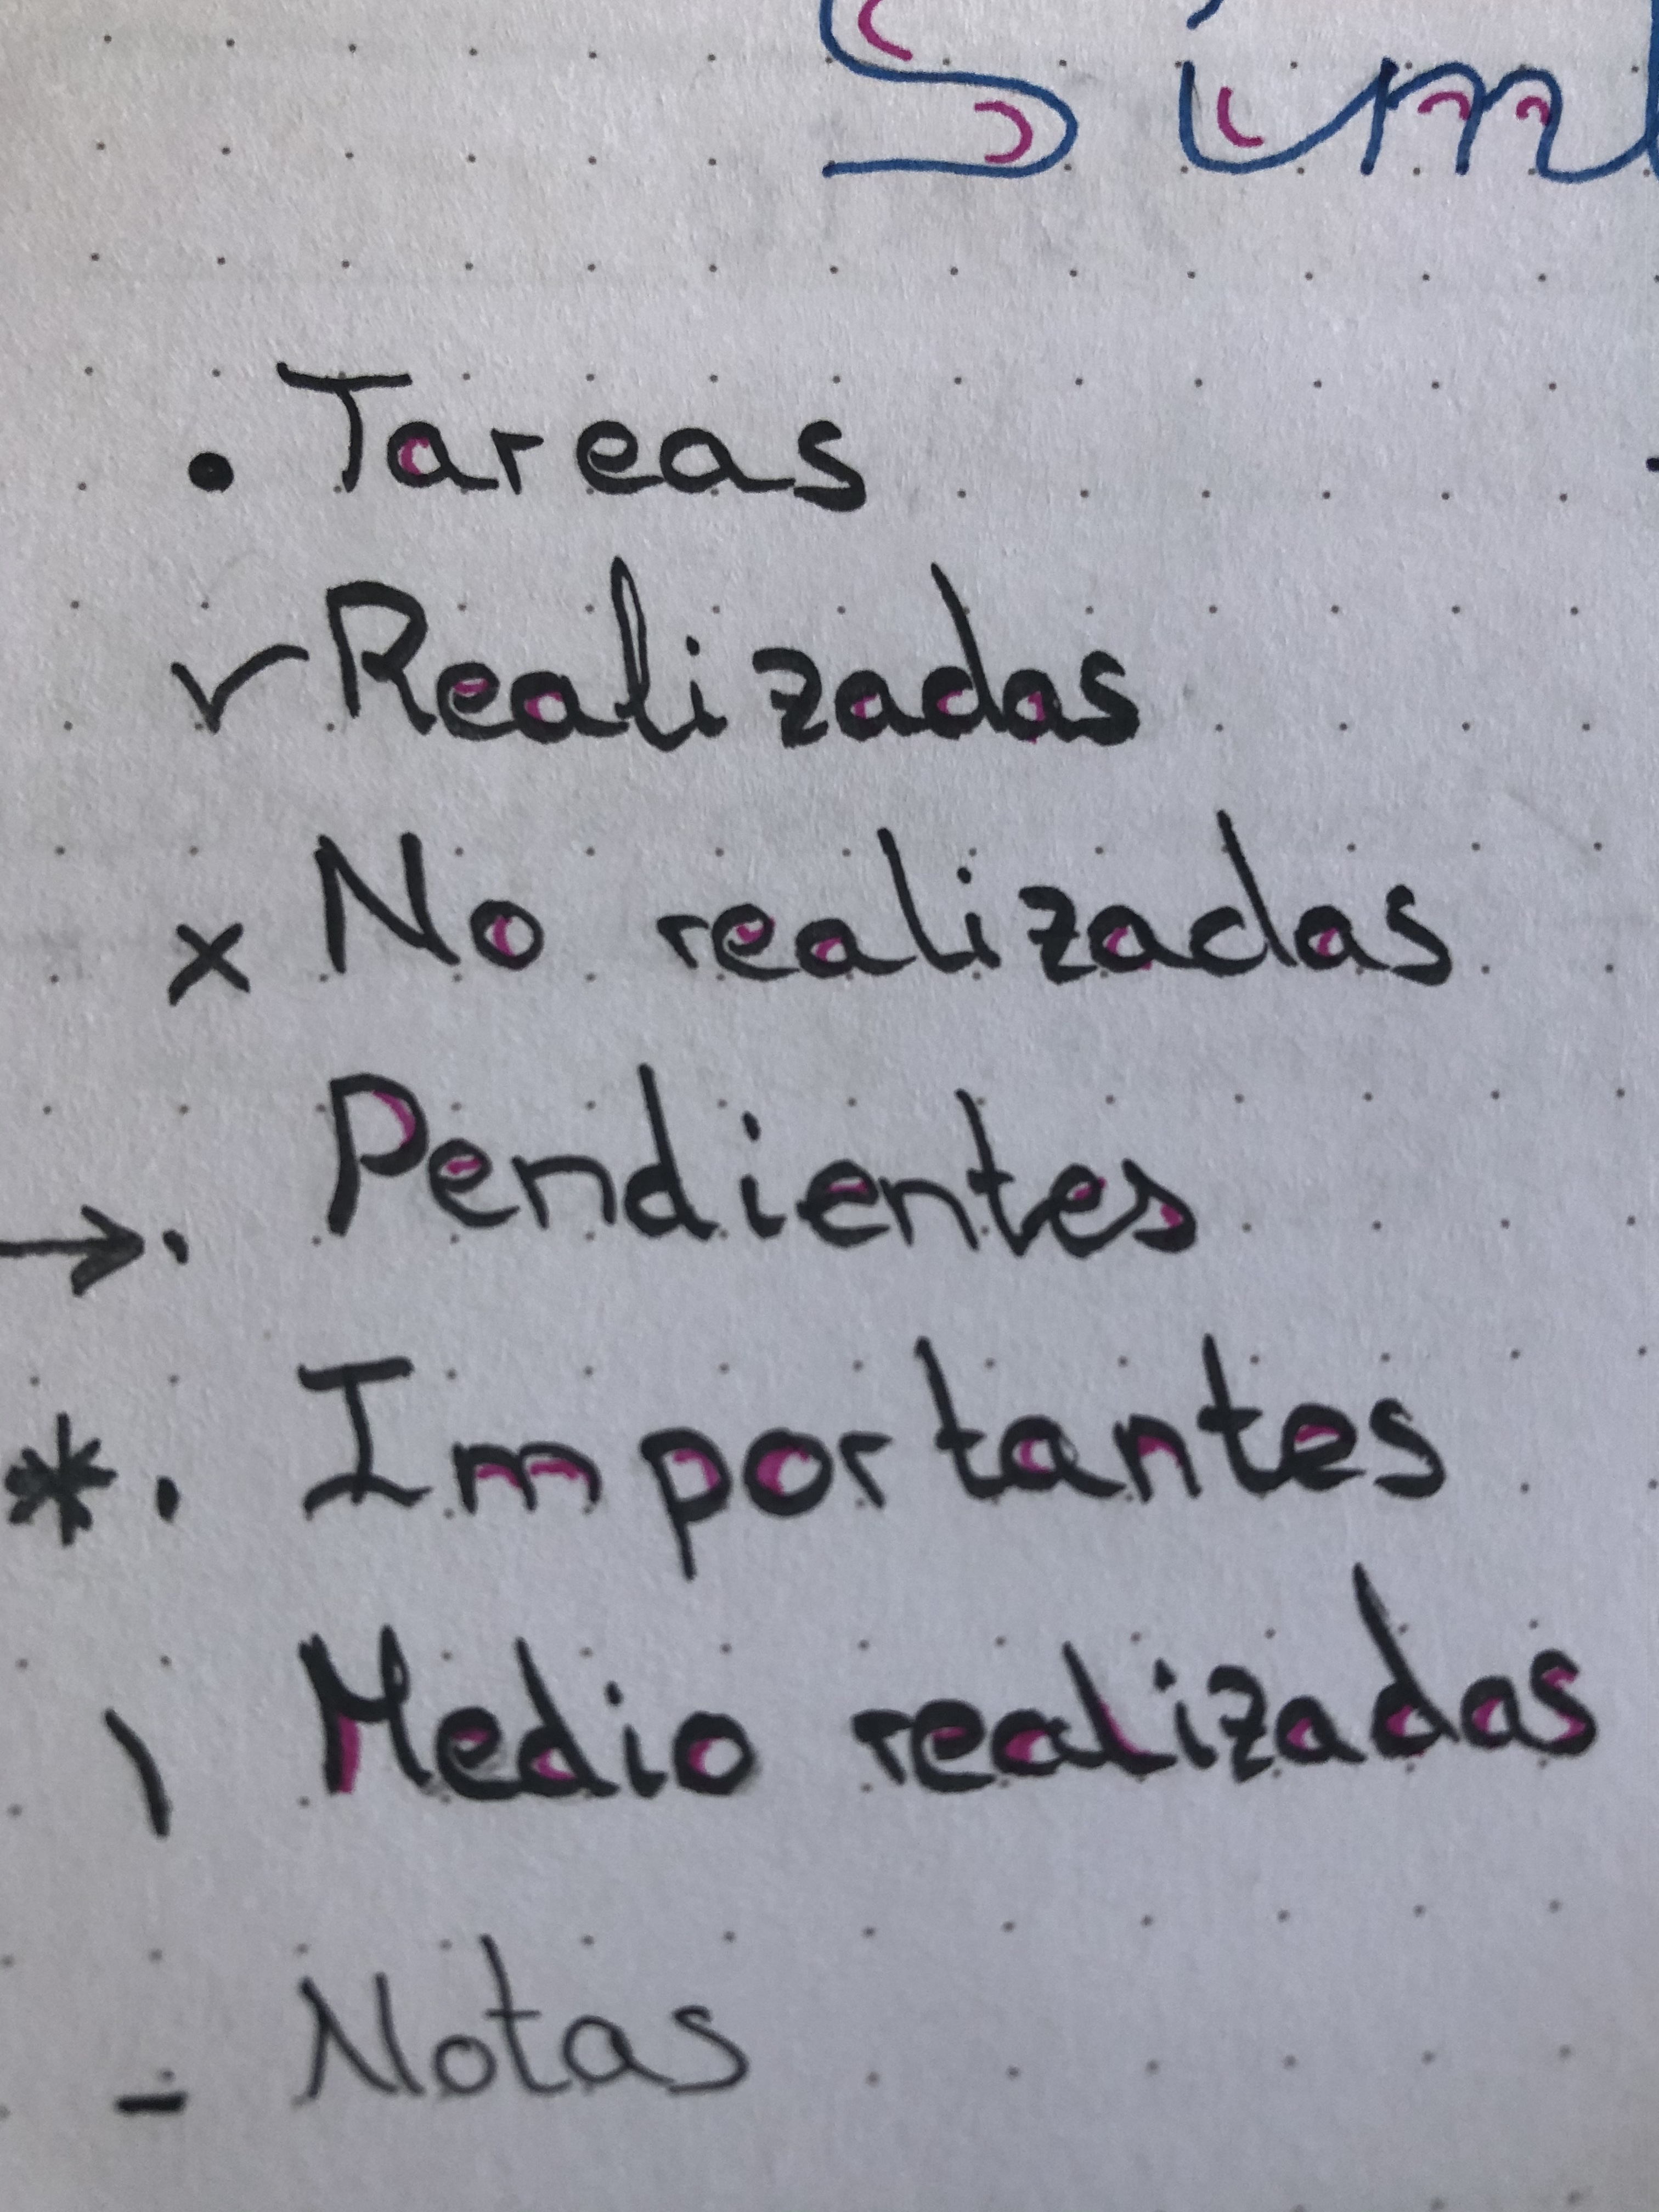 Sím
• Tareas
✓ Realizadas
x No realizadas
→• Pendientes
*• Importantes
\ Medio realizadas
- Notas